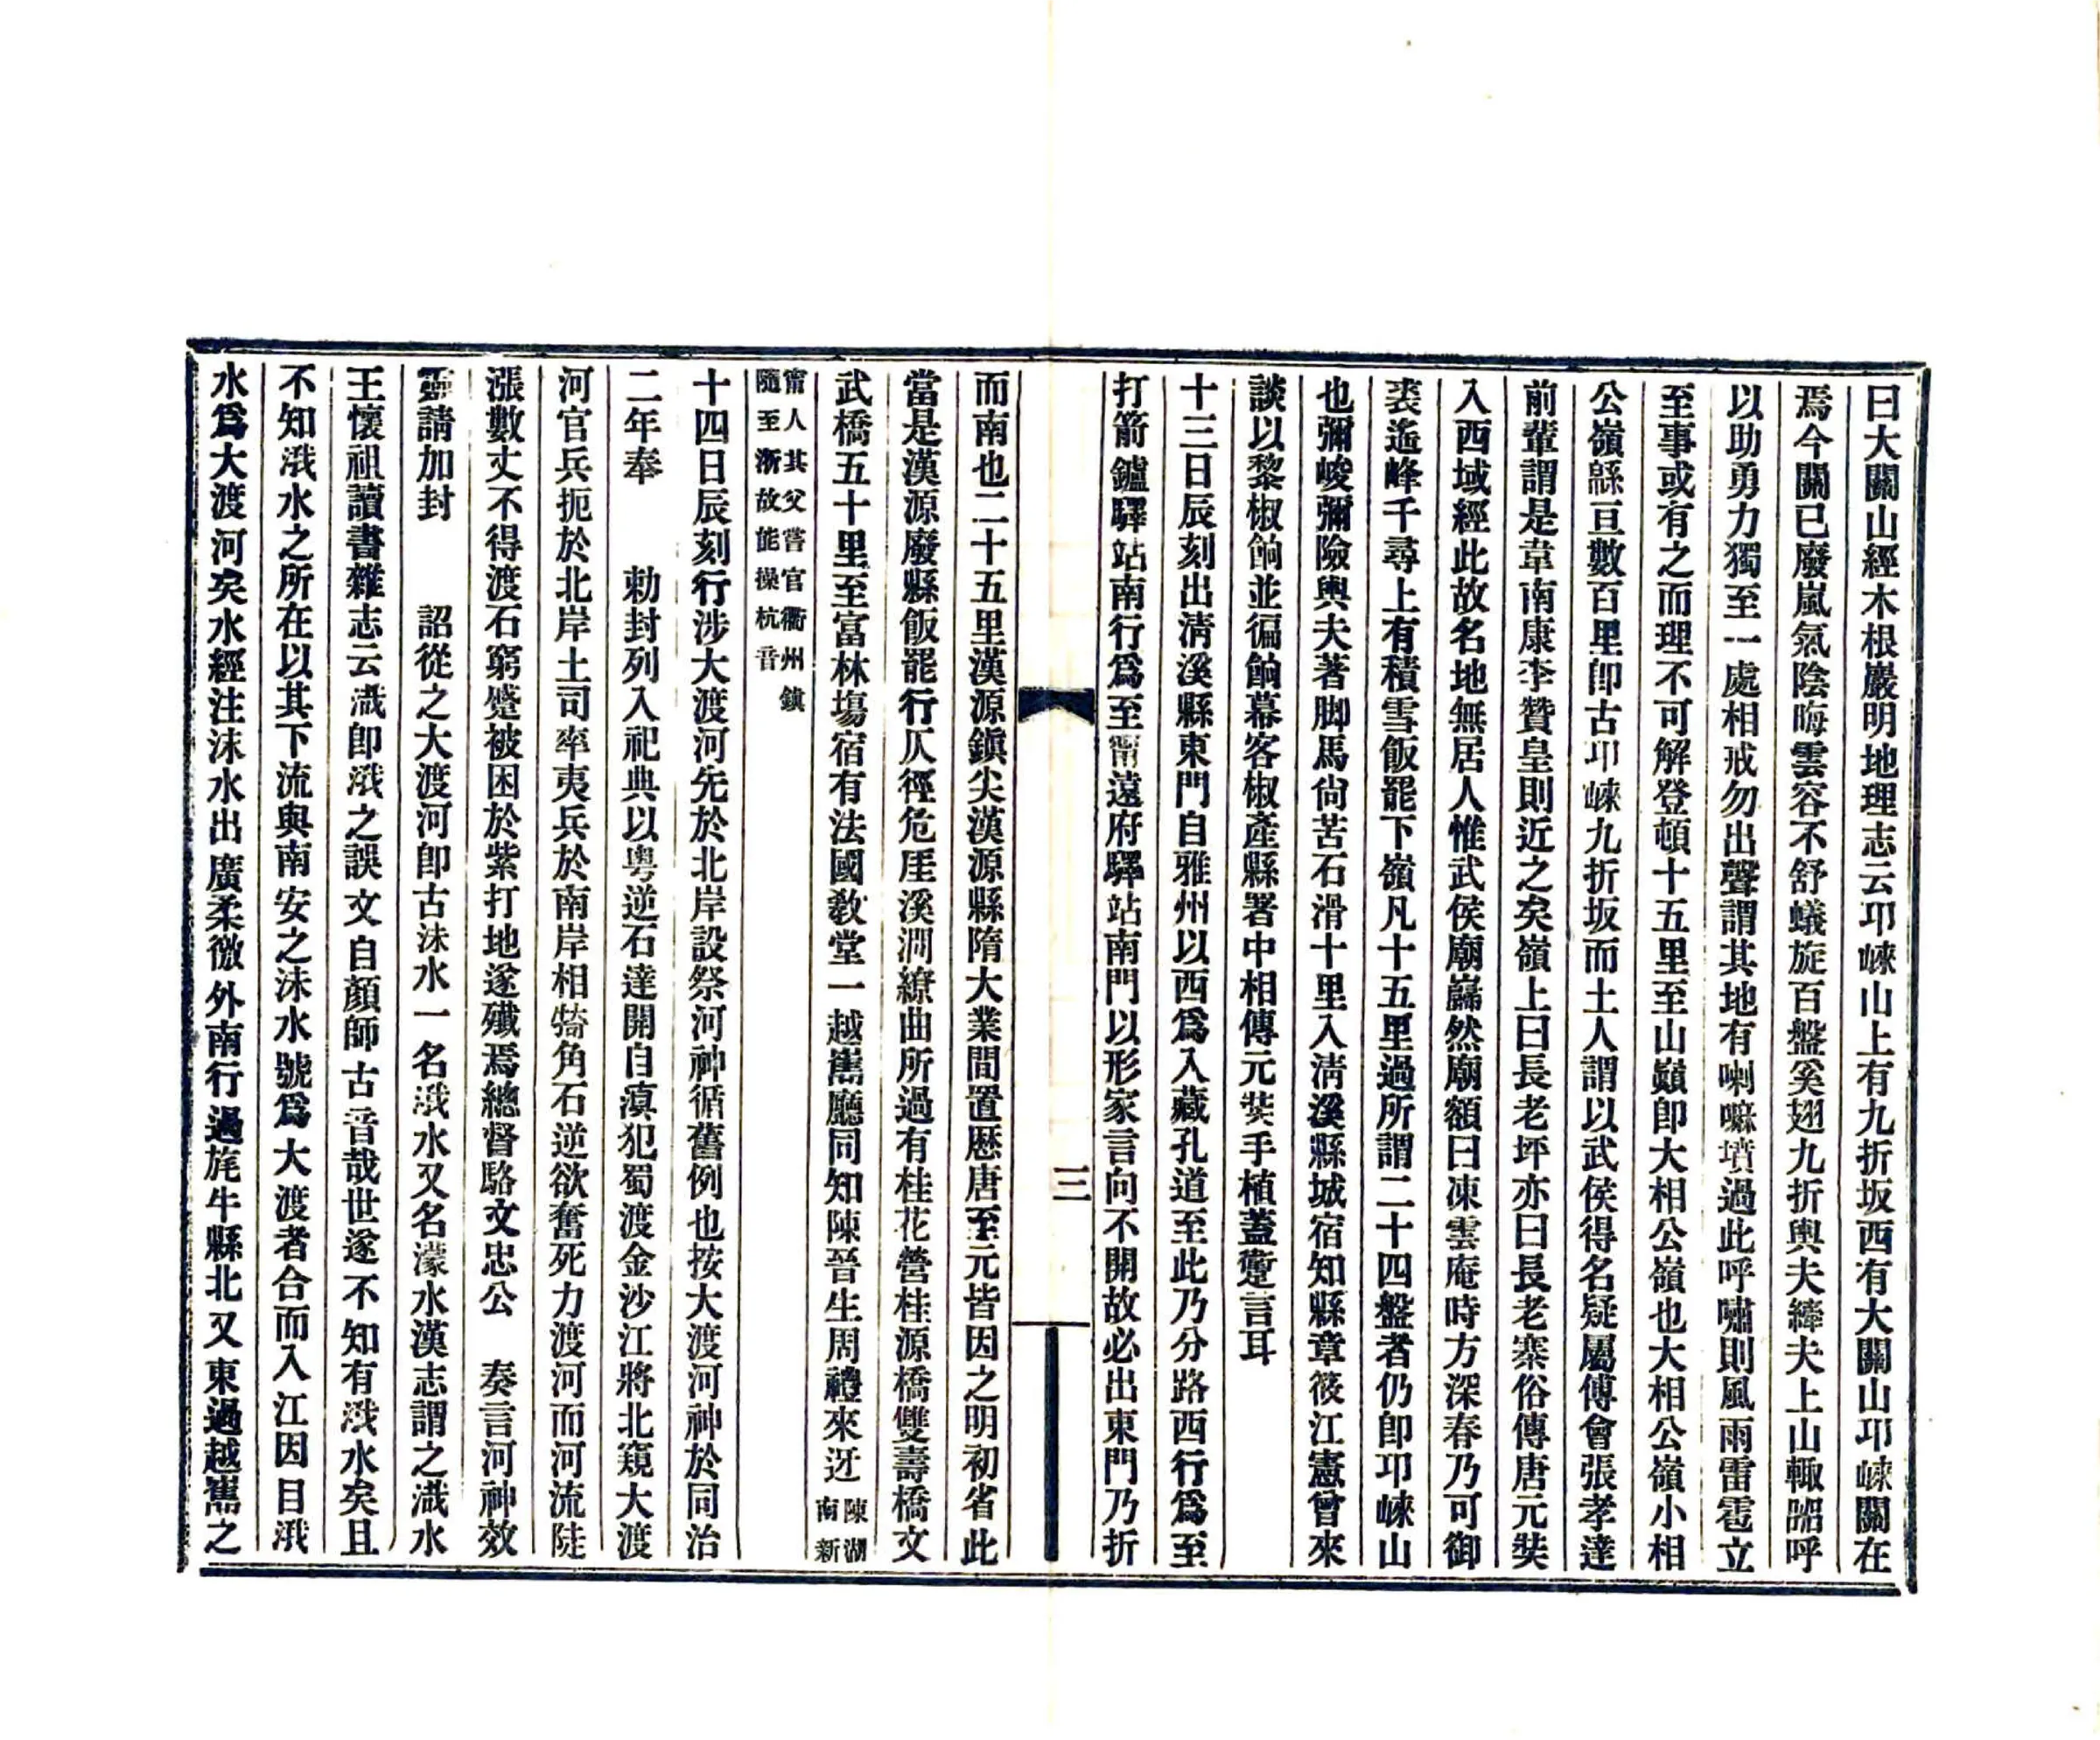 曰大關山經木根巖明地理志云邛崍山上有九折坂西有大關山邛崍關在
焉今關已廢嵐氣陰晦雲容不舒蟻旋百盤奚翅九折輿夫縴夫上山輒謳呼
以助勇力獨至一處相戒勿出聲謂其地有喇嘛墳過此呼嘯則風雨雷雹立
至事或有之而理不可解登頓十五里至山巔卽大相公嶺也大相公嶺小相
公嶺緜亘數百里卽古邛崍九折坂而土人謂以武侯得名疑屬傅會張孝達
前輩謂是韋南康李贊皇則近之矣嶺上曰長老坪亦曰長老寨俗傳唐元奘
入西域經此故名地無居人惟武侯廟巋然廟額曰凍雲庵時方深春乃可御
裘遙峰千尋上有積雪飯罷下嶺凡十五里過所謂二十四盤者仍卽邛崍山
也彌峻彌險輿夫著脚馬尙苦石滑十里入淸溪縣城宿知縣章筱江憲曾來
談以黎椒餉並徧餉幕客椒產縣署中相傳元奘手植蓋躗言耳
十三日辰刻出淸溪縣東門自雅州以西爲入藏孔道至此乃分路西行爲至
打箭鑪驛站南行爲至甯遠府驛站南門以形家言向不開故必出東門乃折
三
而南也二十五里漢源鎭尖漢源縣隋大業間置歷唐至元皆因之明初省此
當是漢源廢縣飯罷行仄徑危厓溪澗繚曲所過有桂花營桂源橋雙壽橋文
武橋五十里至富林塲宿有法國敎堂一越嶲廳同知陳晉生周禮來迓陳湖南新
甯人其父嘗官衢州鎮隨至浙故能操杭音
十四日辰刻行涉大渡河先於北岸設祭河神循舊例也按大渡河神於同治
二年奉　　勅封列入祀典以粤逆石達開自滇犯蜀渡金沙江將北窺大渡
河官兵扼於北岸土司率夷兵於南岸相犄角石逆欲奮死力渡河而河流陡
漲數丈不得渡石窮蹙被困於紫打地遂殲焉總督駱文忠公　奏言河神效
靈請加封　　詔從之大渡河卽古沬水一名涐水又名濛水漢志謂之渽水
王懷祖讀書雜志云渽卽涐之誤文自顏師古音哉世遂不知有涐水矣且
不知涐水之所在以其下流與南安之沬水號爲大渡者合而入江因目涐
水爲大渡河矣水經注沬水出廣柔徼外南行過旄牛縣北又東過越嶲之